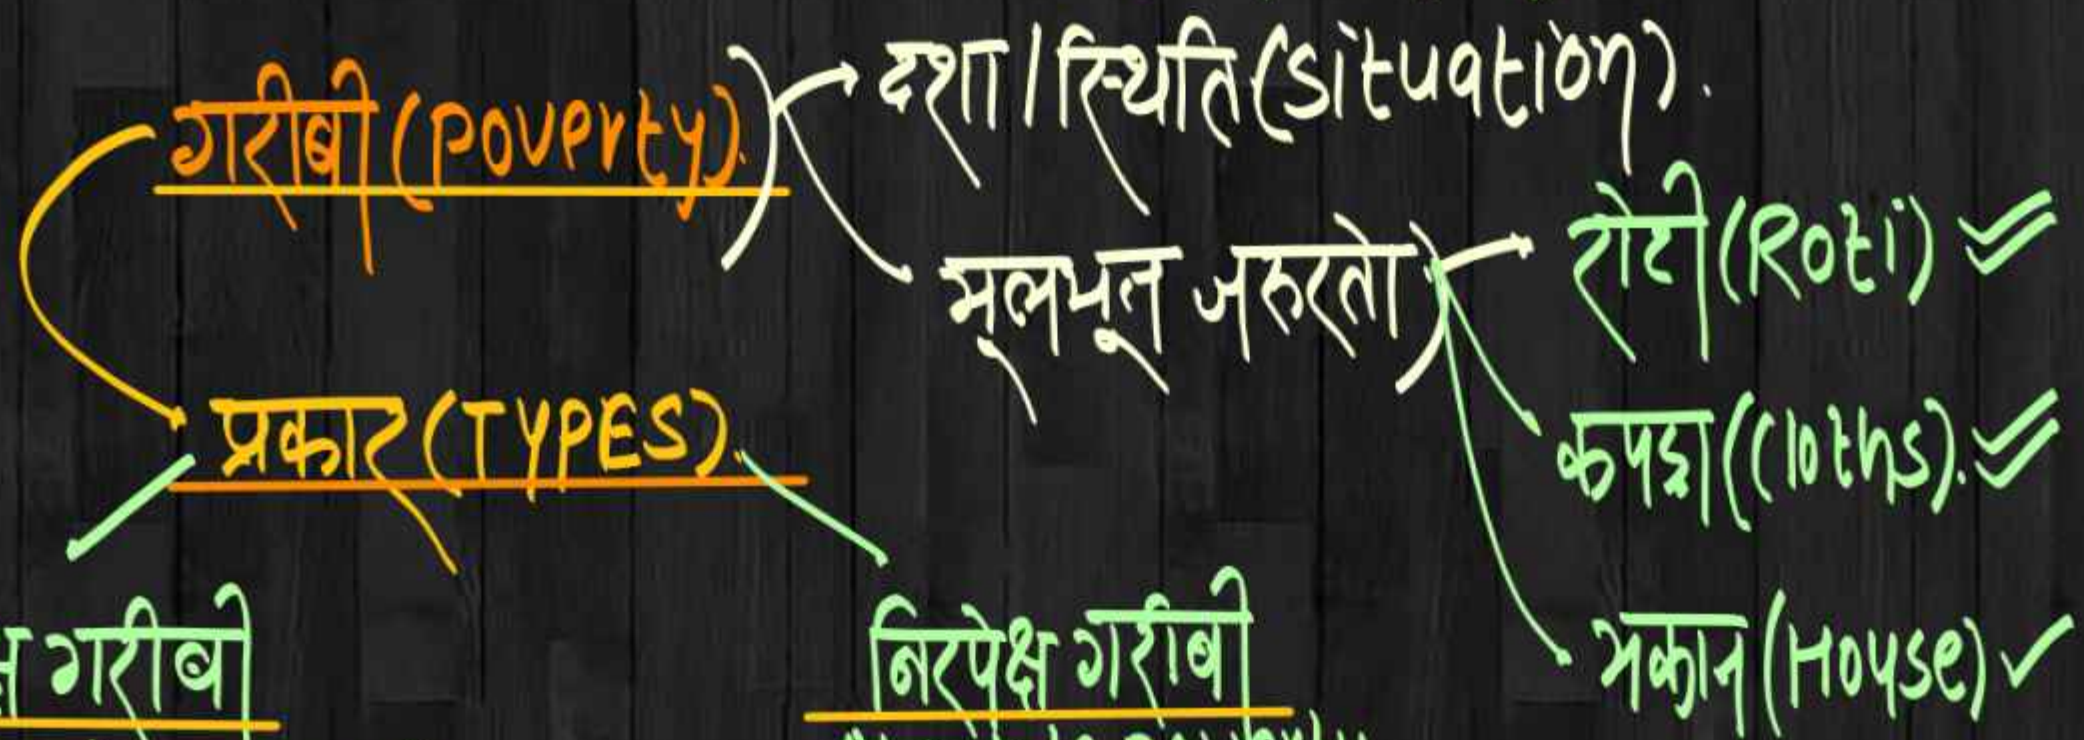 गरीबी (Poverty).
दशा / स्थिति (Situation).
मूलभूत जरुरतो
रोटी (Roti)
कपड़ा (Cloths).
मकान (House)
प्रकार (TYPES).
गरीबी
निरपेक्ष गरीबी